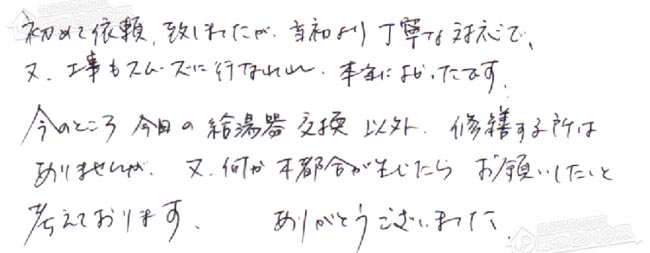 初めて依頼、致しましたが、当初より丁寧な対応で、
又、工事もスムーズに行なわれ、本当によかったです。
今のところ今回の給湯器交換以外、修繕する所は
ありませんが、又、何か不都合が生じたらお願いしたいと
考えております。 ありがとうございました。